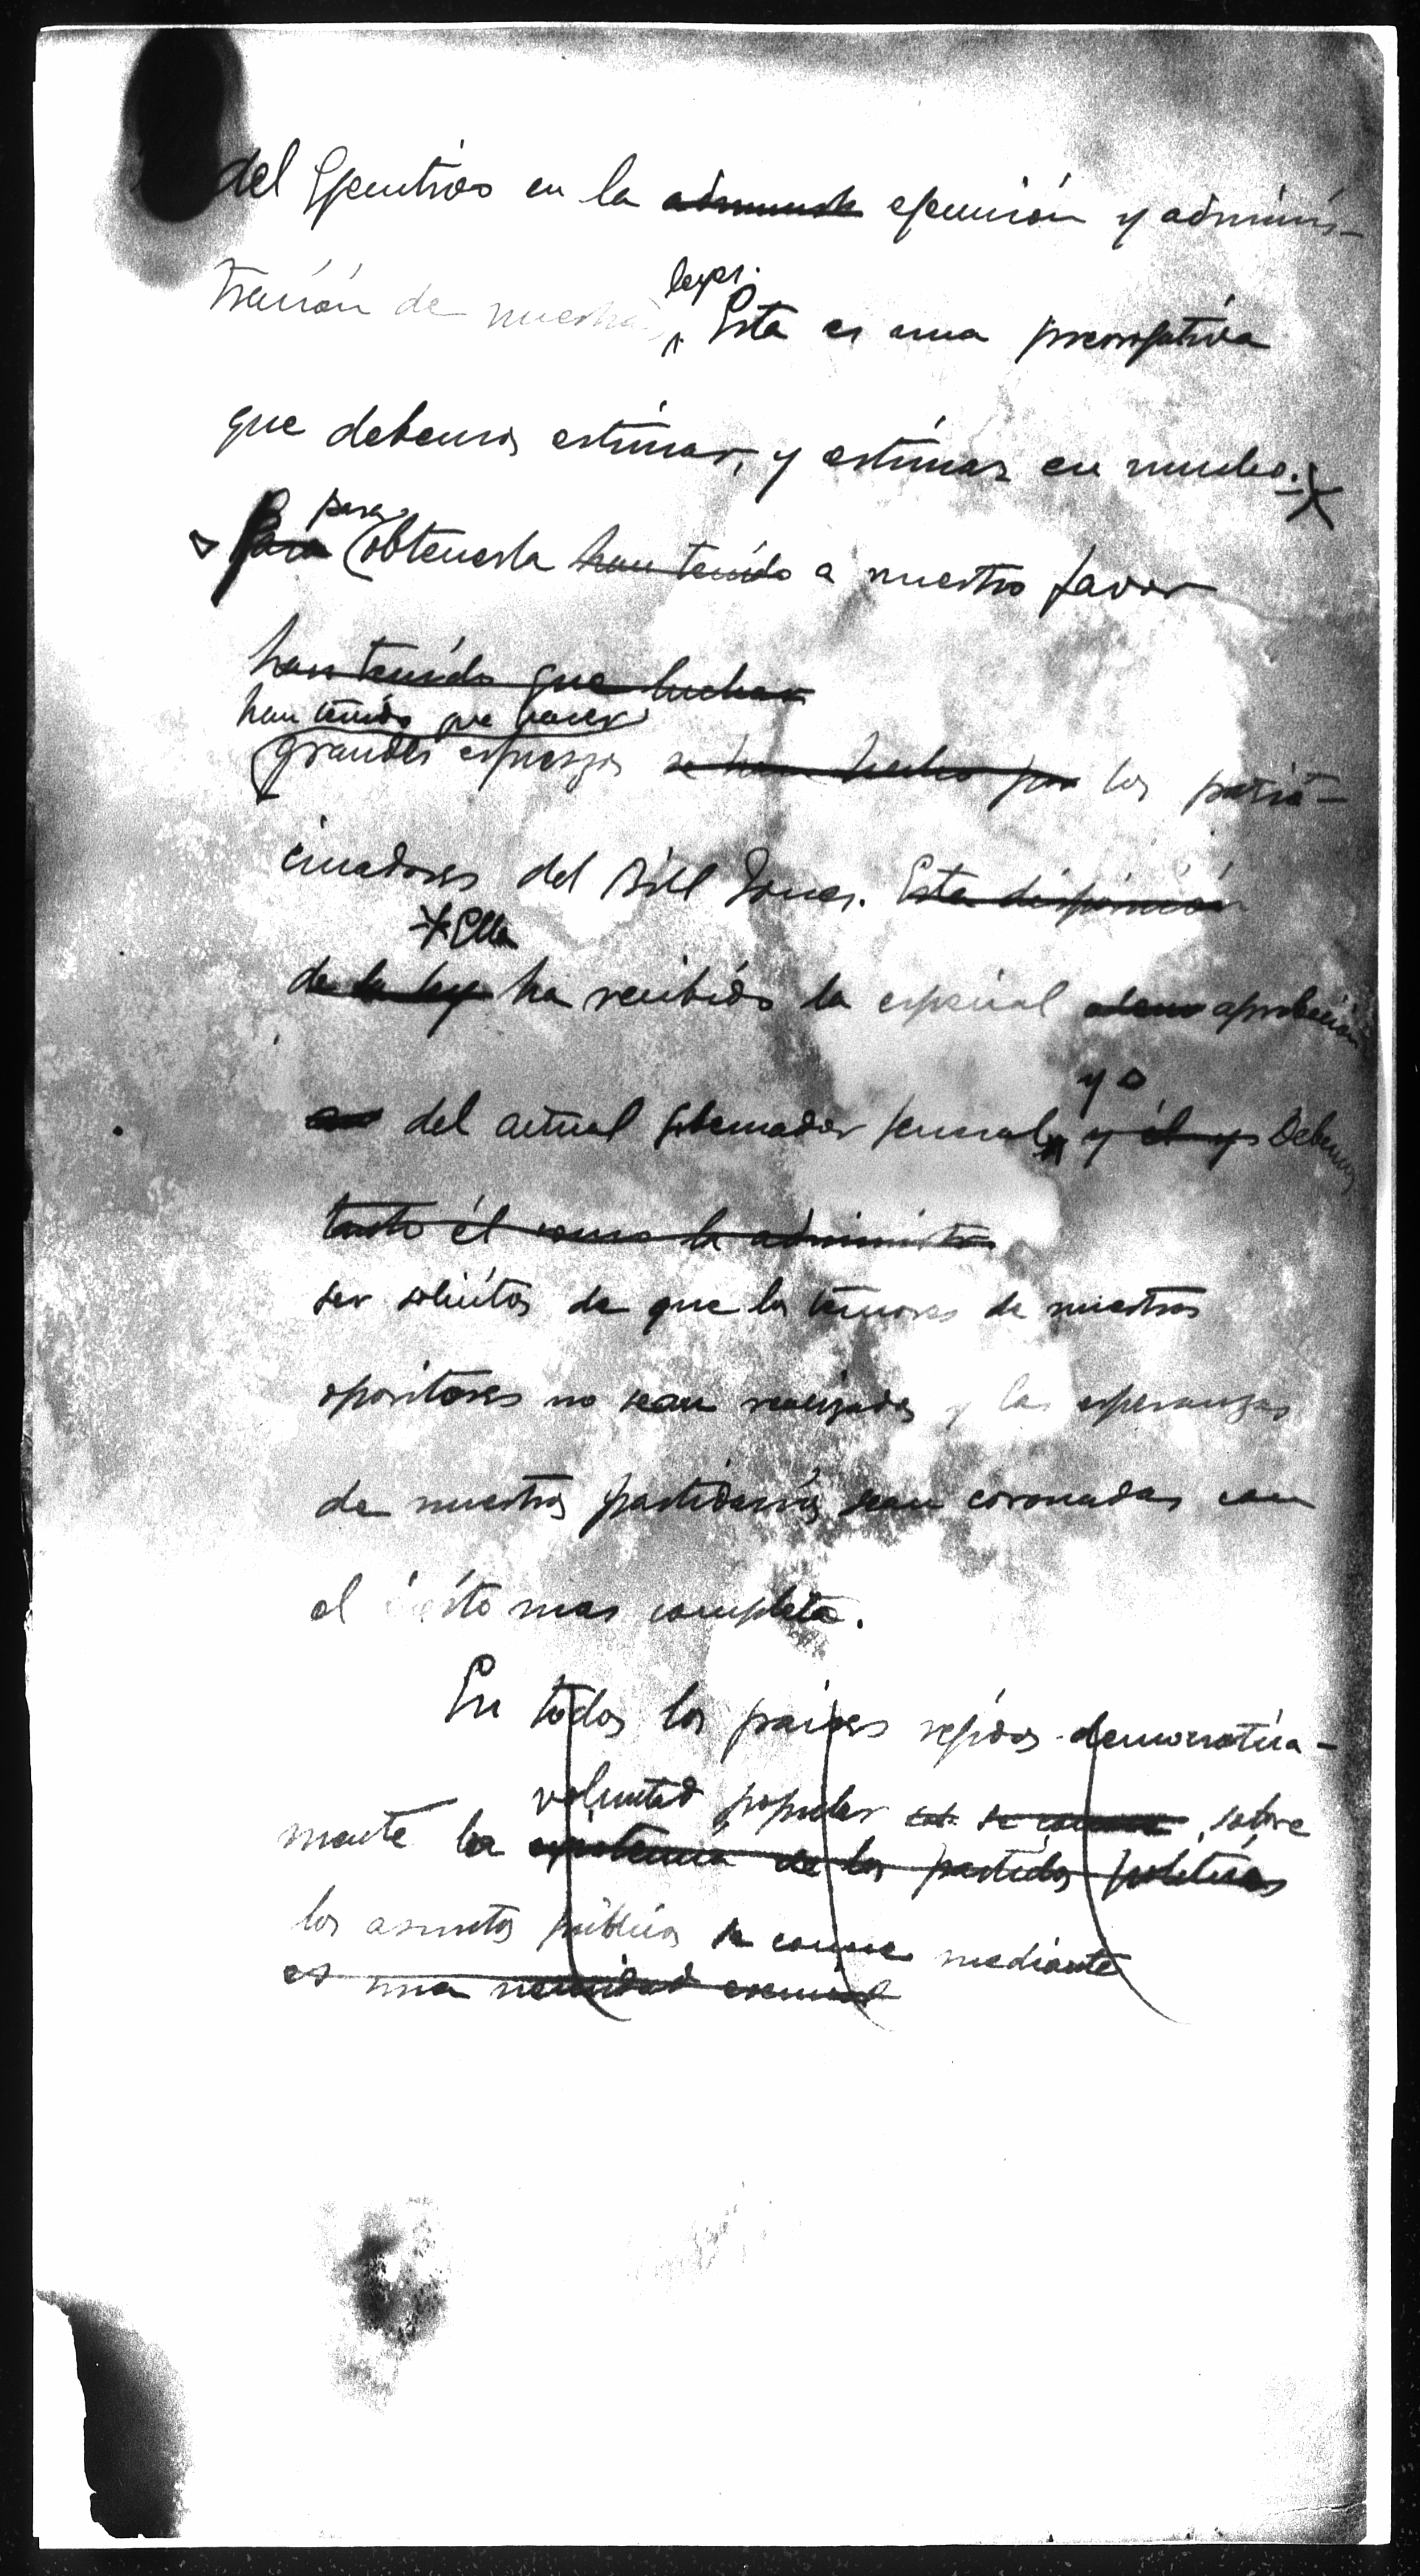 del Ejecutivo en la ejecución y adminis-
tración de nuestras
leyes.
Esta es una prerrogativa
que debemos estimar, y estimar en mucho.
para
Para obtenerla han tenido a nuestro favor
han tenido que luchar
han tenido que hacer
grandes esfuerzos se han hecho por los patro-
cinadores del Bill Jones. Esta disposición
Ella
de la ley ha recibido la especial aprobación
y
del actual gobernador general, y él y Debemos
tanto él como la administra
ser solícitos de que los temores de nuestros
opositores no sean realizados y las esperanzas
de nuestros partidarios sean coronadas con
el éxito mas completo.
En todos los paises regidos democrática-
voluntad popular se conoce sobre
mente la existencia de los partidos políticos
los asuntos públicos se conoce mediante
es una necesidad esencial